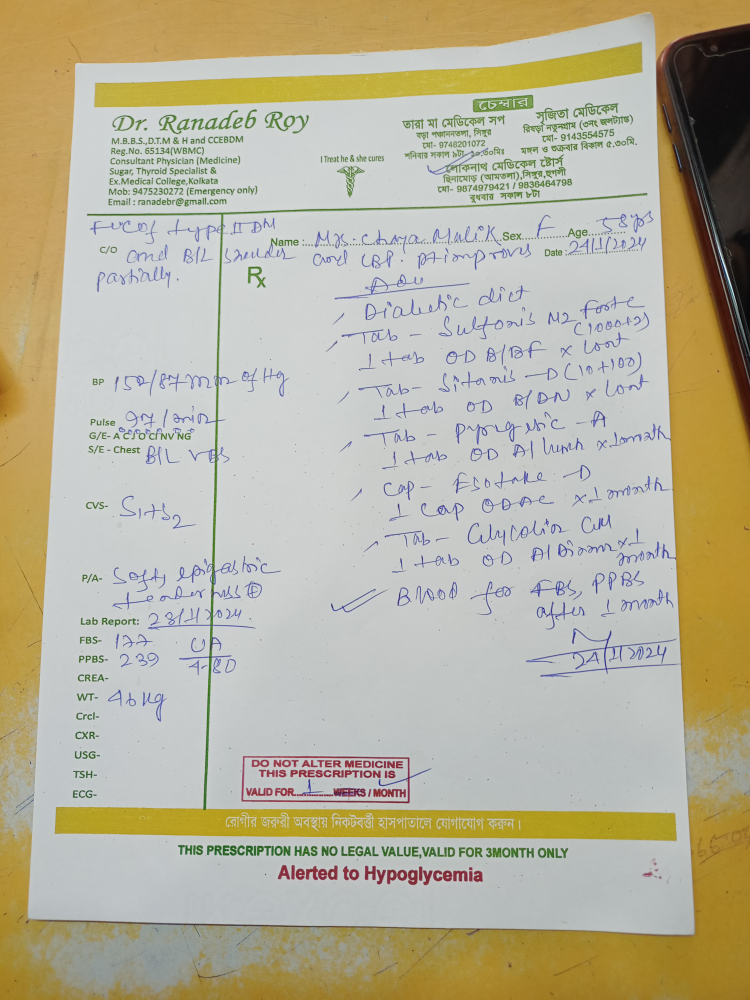 Dr. Ranadeb Roy
M.B.B.S.,D.T.M & H and CCEBDM
Reg.No. 65134(WBMC)
Consultant Physician (Medicine)
Sugar, Thyroid Specialist &
Ex.Medical College,Kolkata
Mob: 9475230272 (Emergency only)
Email : ranadebr@gmail.com
I Treat he & she cures
চেম্বার
তারা মা মেডিকেল সপ
বড়া পঞ্চাননতলা, সিঙ্গুর
মো- 9748201072
শনিবার সকাল ৯টা-১০.৩০মিঃ
সৃজিতা মেডিকেল
রিষড়া নতুনগ্রাম (৩নং জলট্যাঙ্ক)
মো- 9143554575
মঙ্গল ও শুক্রবার বিকাল ৫.৩০মি.
লোকনাথ মেডিকেল ষ্টোর্স
(আমতলা),সিঙ্গুর,হুগলী
মো- 9874979421 / 9836464798
বুধবার সকাল ৮টা
Type II DM
C/O and B/L Shoulder and LBP. Pt improves
partially.
Name : Mrs. Chaya Malik Sex F Age 58 yrs
Date : 24/1/2024
Rx
Adv
Diabetic diet
Tab - Sulfonis M2 Forte
(1000+2)
1 tab OD B/BF x cont
Tab - Sitanis - D (10+100)
1 tab OD B/DN x cont
Tab - Pyrigesic - A
1 tab OD A/lunch x 1 month
Cap - Esotake - D
1 cap OD AC x 1 month
Tab - Glycolin GM
1 tab OD A/Dinner x 1
month
Blood for FBS, PPBS
after 1 month
24/1/2024
BP 152/87 mm of Hg
Pulse 97/min
G/E- A C J O Cl NV NG
S/E - Chest B/L VBS
CVS- S1+S2
P/A- Soft, epigastric
tenderness ⊕
Lab Report: 23/1/2024
FBS- 177 UA
PPBS- 239 4.80
CREA-
WT- 46 kg
Crcl-
CXR-
USG-
TSH-
ECG-
DO NOT ALTER MEDICINE
THIS PRESCRIPTION IS
VALID FOR 1 WEEKS / MONTH
রোগীর জরুরী অবস্থায় নিকটবর্ত্তী হাসপাতালে যোগাযোগ করুন।
THIS PRESCRIPTION HAS NO LEGAL VALUE,VALID FOR 3MONTH ONLY
Alerted to Hypoglycemia